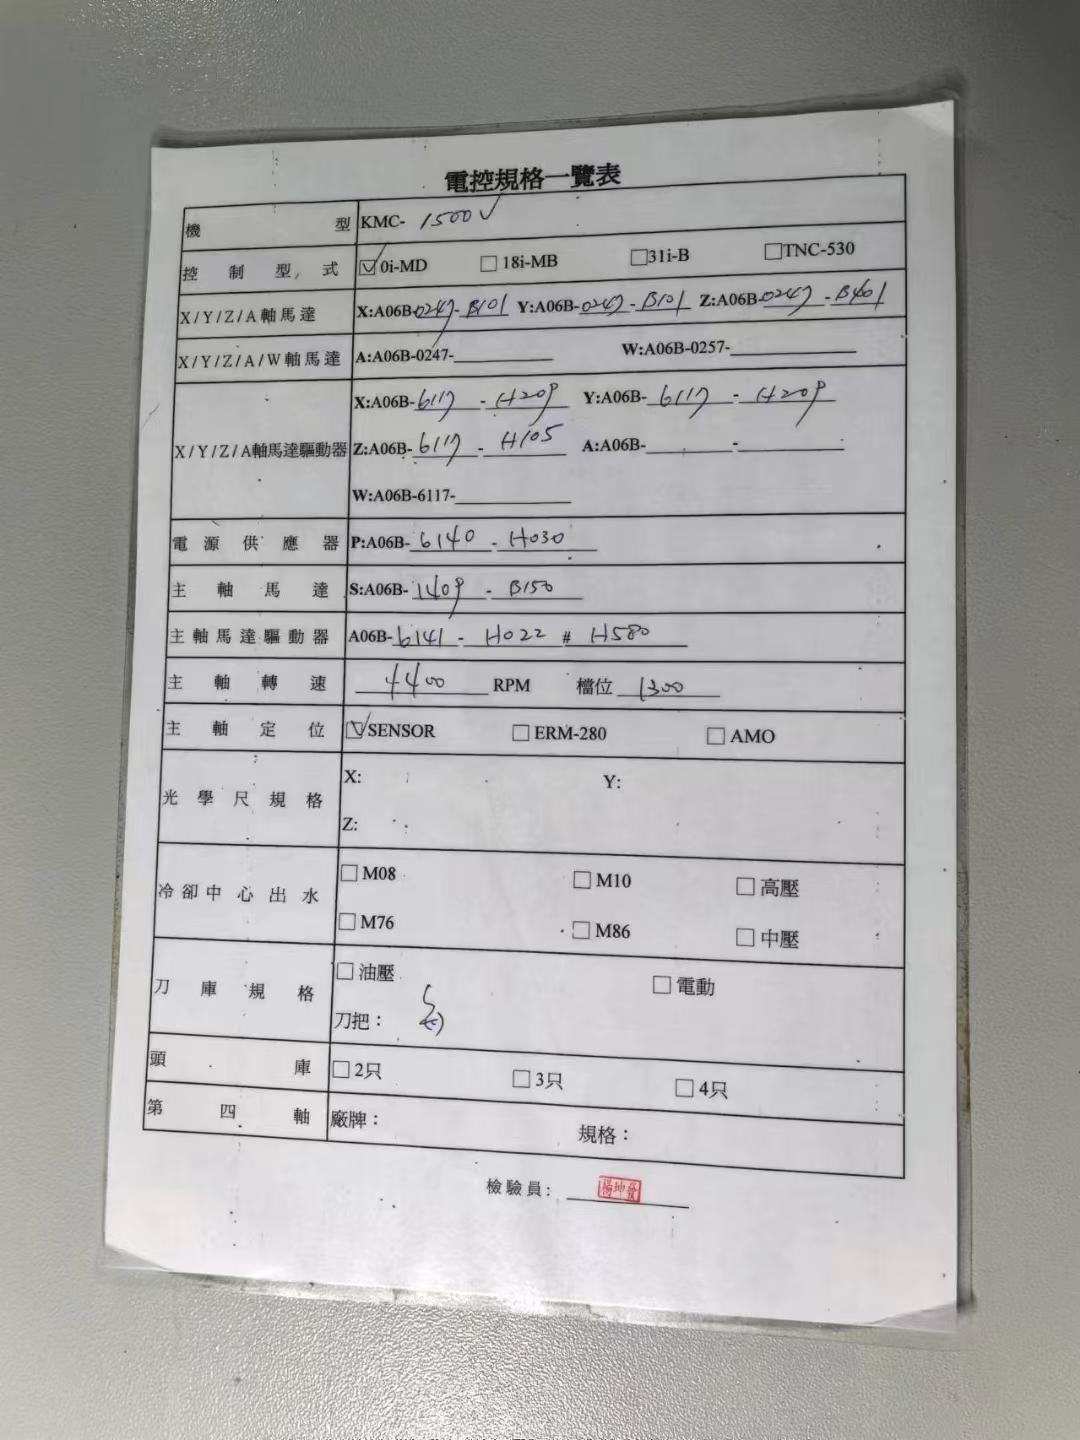 電控規格一覽表
機型 KMC- 1500V
控制型式 ☑0i-MD ☐18i-MB ☐31i-B ☐TNC-530
X/Y/Z/A軸馬達 X:A06B-0247-B101 Y:A06B-0247-B101 Z:A06B-0247-B401
X/Y/Z/A/W軸馬達 A:A06B-0247-________ W:A06B-0257-________
X/Y/Z/A軸馬達驅動器 X:A06B-6117-H209 Y:A06B-6117-H209
Z:A06B-6117-H105 A:A06B-______-______
W:A06B-6117-________
電源供應器 P:A06B-6140-H030
主軸馬達 S:A06B-1409-B150
主軸馬達驅動器 A06B-6141-H022#H580
主軸轉速 4400 RPM 檔位 1300
主軸定位 ☑SENSOR ☐ERM-280 ☐AMO
光學尺規格 X: Y:
Z:
冷卻中心出水 ☐M08 ☐M10 ☐高壓
☐M76 ☐M86 ☐中壓
刀庫規格 ☐油壓 ☐電動
刀把：
頭庫 ☐2只 ☐3只 ☐4只
第四軸 廠牌： 規格：
檢驗員：